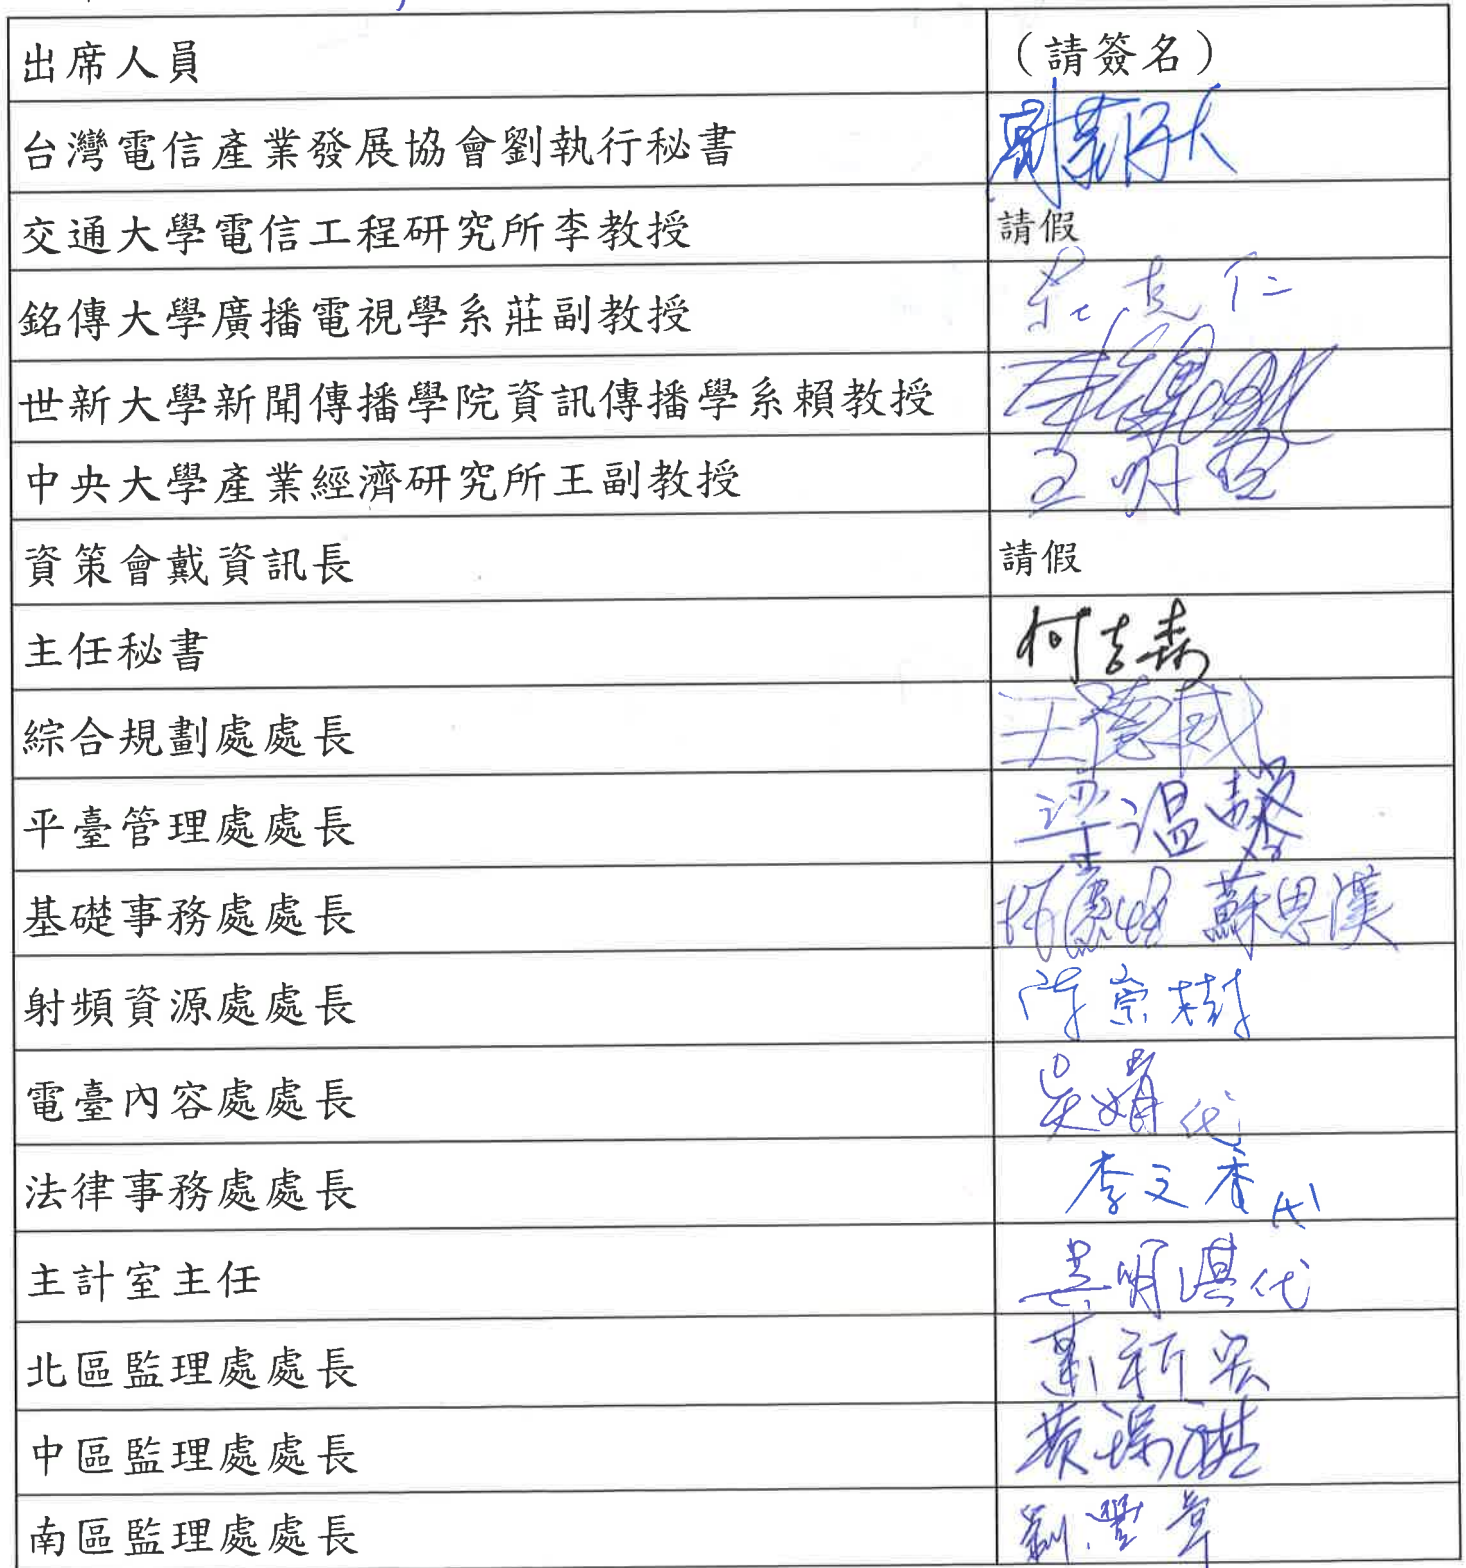 出席人員 （請簽名）
台灣電信產業發展協會劉執行秘書
交通大學電信工程研究所李教授 請假
銘傳大學廣播電視學系莊副教授 克仁
世新大學新聞傳播學院資訊傳播學系賴教授
中央大學產業經濟研究所王副教授 王明
資策會戴資訊長 請假
主任秘書 何吉森
綜合規劃處處長 王德威
平臺管理處處長 梁溫馨
基礎事務處處長 蘇思漢
射頻資源處處長 陳崇樹
電臺內容處處長 吳娟代
法律事務處處長 李文秀代
主計室主任 吳明淇代
北區監理處處長 蕭祈宏
中區監理處處長 黃瑞
南區監理處處長 劉豐章